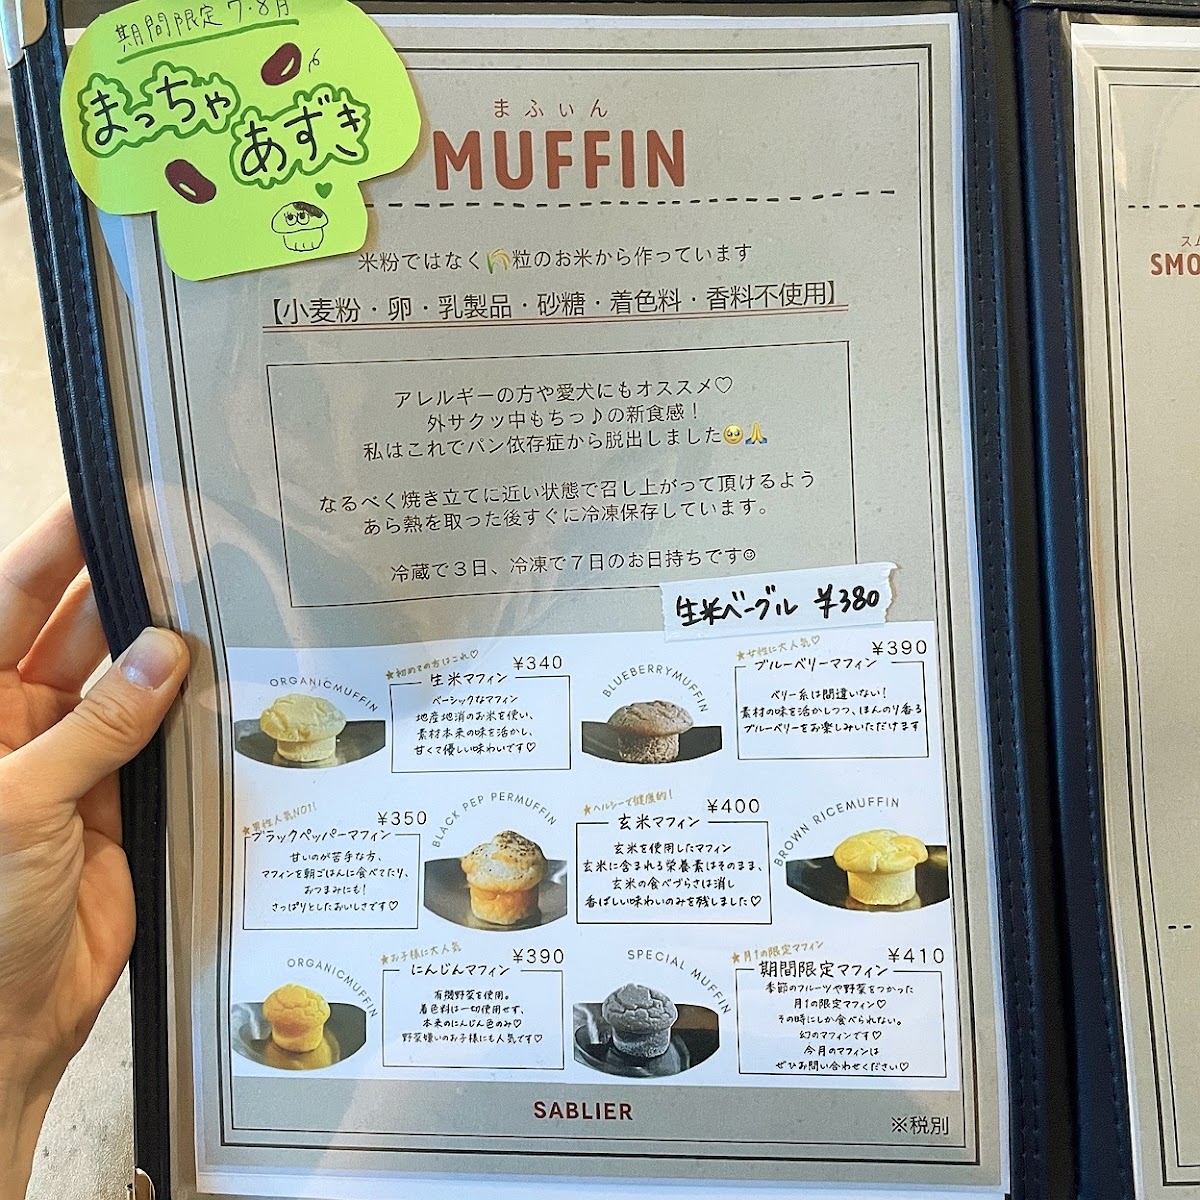 期間限定 7・8月
まっちゃ
あずき
まふぃん
MUFFIN
米粉ではなく🌾粒のお米から作っています
【小麦粉・卵・乳製品・砂糖・着色料・香料不使用】
アレルギーの方や愛犬にもオススメ♡
外サクッ中もちっ♪の新食感！
私はこれでパン依存症から脱出しました🥹🙏
なるべく焼き立てに近い状態で召し上がって頂けるよう
あら熱を取った後すぐに冷凍保存しています。
冷蔵で３日、冷凍で７日のお日持ちです☺
生米ベーグル ¥380
ORGANICMUFFIN
★初めての方はこれ♡
¥340
生米マフィン
ベーシックなマフィン
地産地消のお米を使い、
素材本来の味を活かし、
甘くて優しい味わいです♡
BLUEBERRYMUFFIN
★女性に大人気♡
¥390
ブルーベリーマフィン
ベリー系は間違いない!
素材の味を活かしつつ、ほんのり香る
ブルーベリーをお楽しみいただけます
★男性人気NO1!
¥350
ブラックペッパーマフィン
甘いのが苦手な方、
マフィンを朝ごはんに食べてたり、
おつまみにも!
さっぱりとしたおいしさです♡
BLACK PEP PERMUFFIN
★ヘルシーで健康的!
¥400
玄米マフィン
玄米を使用したマフィン
玄米に含まれる栄養素はそのまま、
玄米の食べづらさは消し
香ばしい味わいのみを残しました♡
BROWN RICEMUFFIN
ORGANICMUFFIN
★お子様に大人気
¥390
にんじんマフィン
有機野菜を使用。
着色料は一切使用せず、
本来のにんじん色のみ♡
野菜嫌いのお子様にも人気です♡
SPECIAL MUFFIN
★月1の限定マフィン
¥410
期間限定マフィン
季節のフルーツや野菜をつかった
月1の限定マフィン♡
その時にしか食べられない。
幻のマフィンです♡
今月のマフィンは
ぜひお問い合わせください♡
SABLIER
※税別
スム
SMO